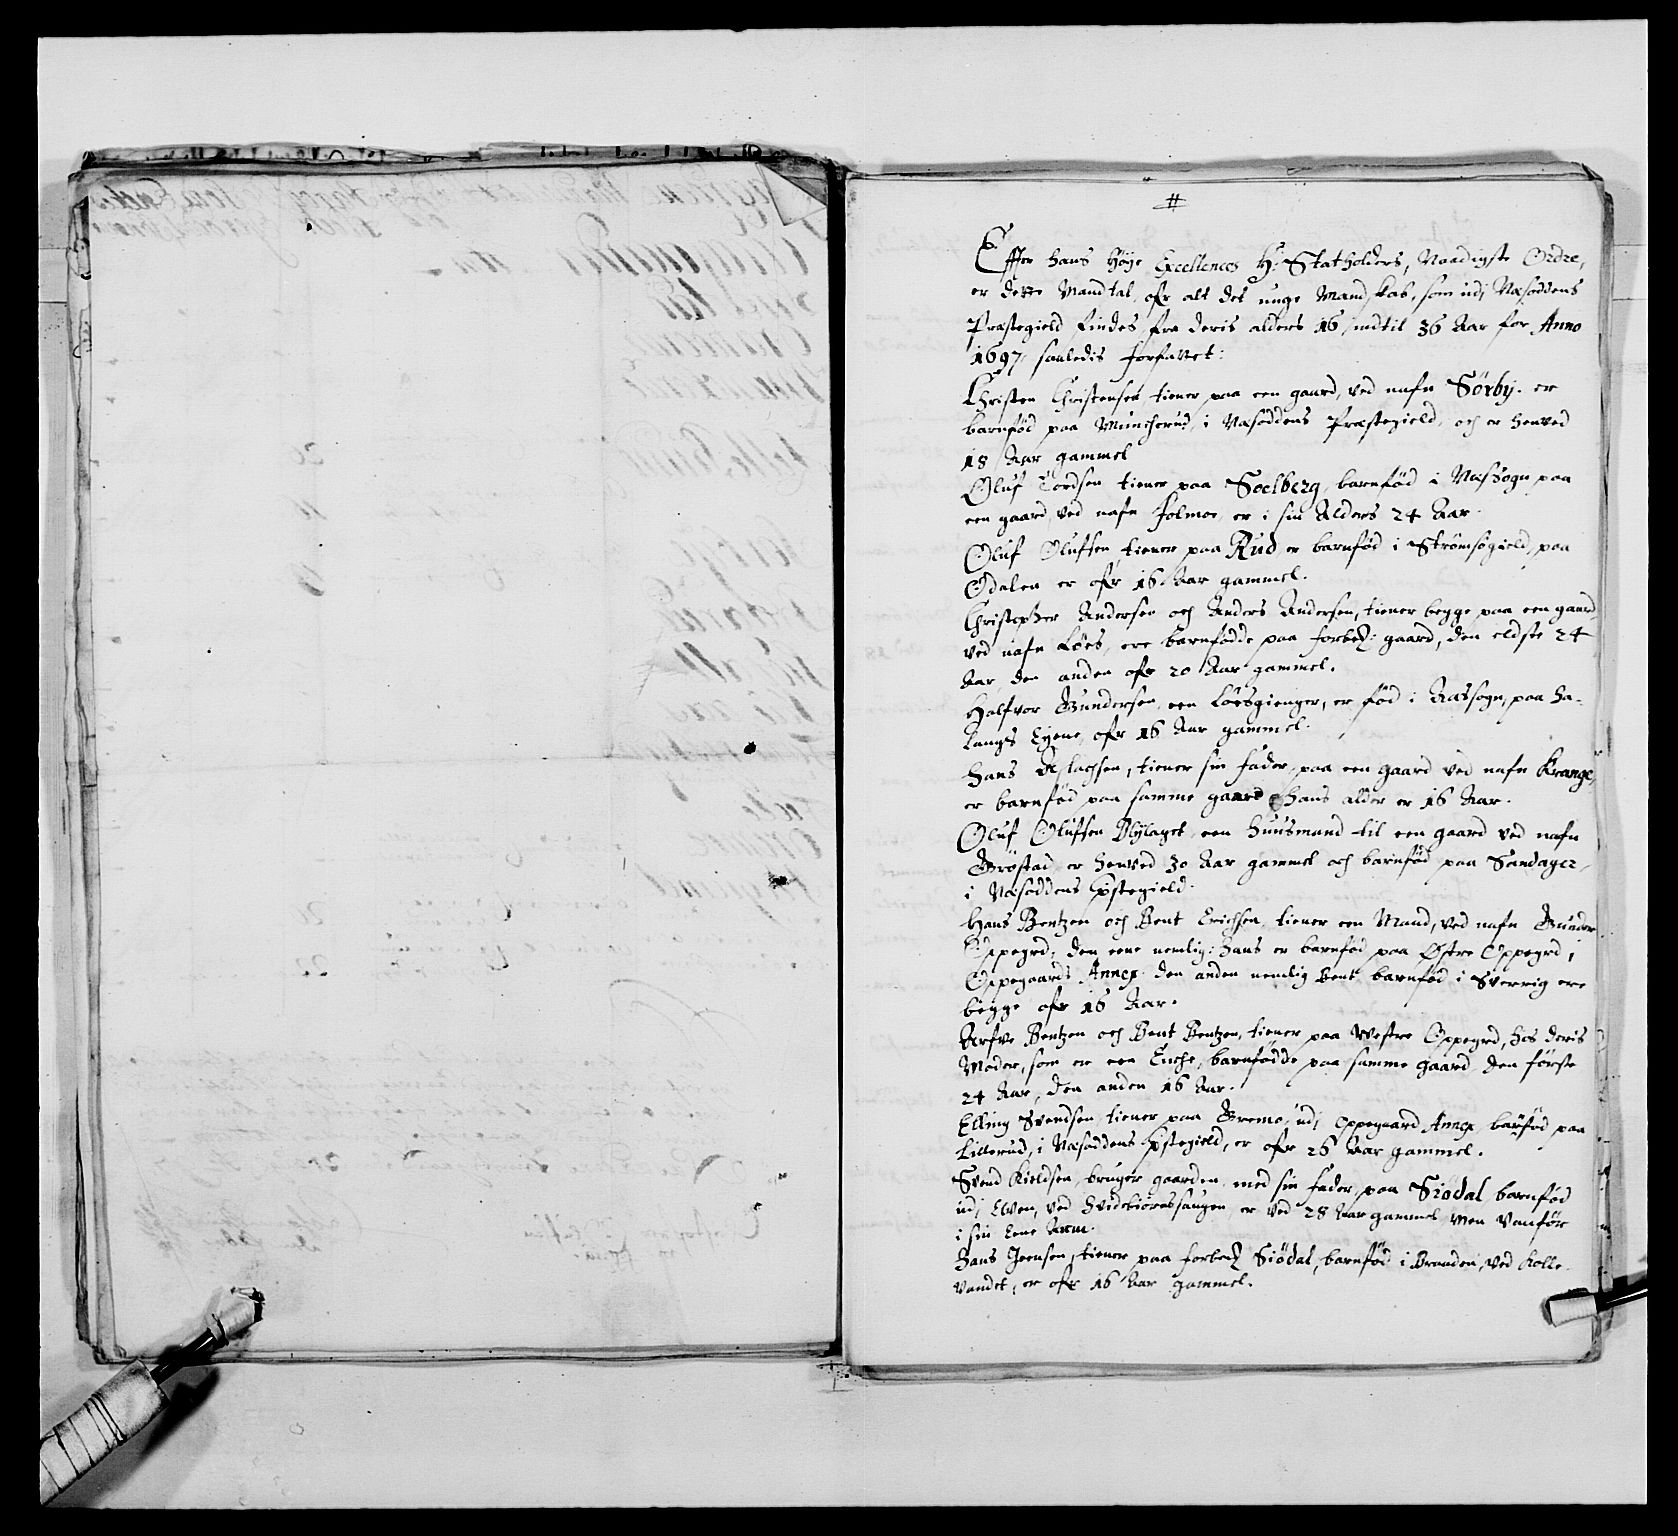 Effter Hans Høye Excellences Hr: Statholders, Naadigste Ordre,
er dette Mandtal, ofr alt det unge Mandskab, som udj Næsoddens
Præstegield findes fra deris alders 16 indtil 36 Aar for Anno
1697, saaledis forfattet:
Christen Christensen tiener paa een gaard, ved nafn Sörby. er
barnfød paa Muncherud, i Næsoddens Præstegield, och er henved
18 Aar gammel
Oluf Tordsen tiener paa Soelberg, barnfød i Næssogn paa
een gaard ved nafn Holmoe, er i sin Alders 24 Aar.
Oluf Olufsen, tiener paa Rud er barnfød i Strømsøgield, paa
Ødalen er ofr 16 Aar gammel.
Christopher Andersen och Anders Andersen, tiener begge paa een gaard
ved nafn Løes, ere barnfødde paa forbed: gaard, den eldste 24
Aar den anden ofr 20 Aar gammel.
Halfvor Gundersen, een Løesgienger, er fød i Aassogn, paa Ha-
langs Eyene, ofr 16 Aar gammel.
Hans Aslachsen, tiener sin fader, paa een gaard ved nafn Krange,
er barnfød paa samme gaard Hans alder er 16 Aar.
Oluf Olufsen Blylaget, een Huusmand til een gaard ved nafn
Grøstad, er henved 30 Aar gammel och barnfød paa Sandager,
i Næsoddens Pstegield.
Hans Bentzen och Bent Erichsen, tiener een Mand, ved nafn Gunder
Oppegrd, den eene nemlig: Hans er barnfød paa Østre Oppegrd, i
Oppegaards Annex. den anden nemlig Bent barnfød i Sverrig ere
begge ofr 16 Aar.
Arfve Bentzen och Bent Bentzen, tiener paa Westre Oppegrd, hos deris
Moder, som er een Enche, barnfødde paa samme gaard den første
24 Aar, den anden 16 Aar.
Elling Svendsen, tiener paa Greme, udj Oppegaard Annex barfød paa
Lillerud, i Næsoddens Pstegield, er ofr 26 Aar gammel.
Svend Kieldsen, bruger gaarden med sin fader, paa Siødal barnfød
udj Ewen, ved Hvidebiørnssaugen er ved 28 Aar gammel, Men Vanfør
i sin Eene Arm.
Hans Joensen, tiener paa forbed Siödal, barnfød i Braaden, ved Kolle-
vandet, er ofr 16 Aar gammel.